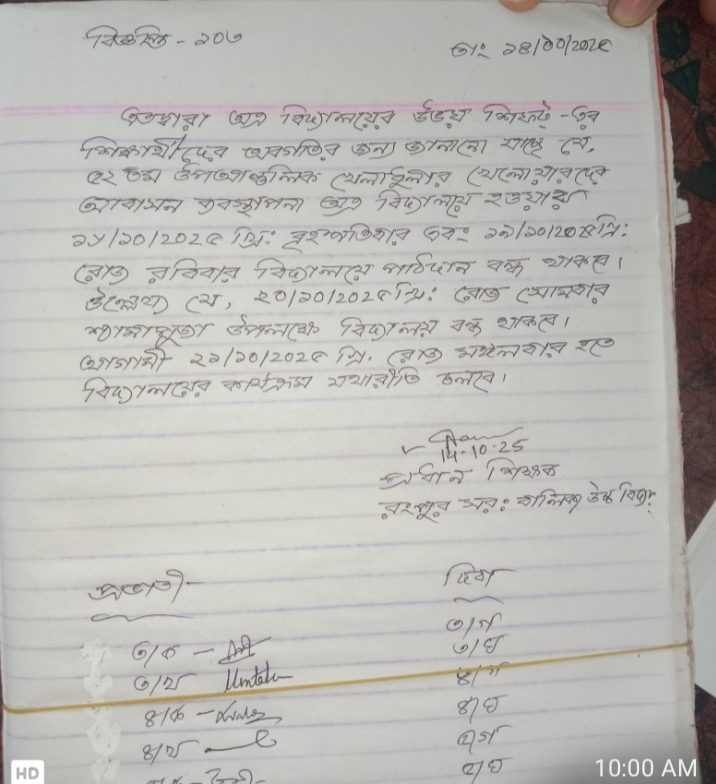 বিজ্ঞপ্তি - ২০৩
তাং ১৪/১০/২০২৫
এতদ্বারা অত্র বিদ্যালয়ের উভয় শিফট - এর
শিক্ষার্থীদের অবগতির জন্য জানানো যাচ্ছে যে,
৫২ তম উপআঞ্চলিক খেলাধুলার খেলোয়ারদের
আবাসন ব্যবস্থাপনা অত্র বিদ্যালয়ে হওয়ায়
১৬/১০/২০২৫ খ্রি: বৃহস্পতিবার এবং ১৯/১০/২০২৫ খ্রি:
রোজ রবিবার বিদ্যালয়ে পাঠদান বন্ধ থাকবে।
উল্লেখ্য যে, ২০/১০/২০২৫ খ্রি: রোজ সোমবার
শ্যামাপূজা উপলক্ষে বিদ্যালয় বন্ধ থাকবে।
আগামী ২১/১০/২০২৫ খ্রি. রোজ মঙ্গলবার হতে
বিদ্যালয়ের কার্যক্রম যথারীতি চলবে।
14.10.25
প্রধান শিক্ষক
রংপুর সর: বালিকা উচ্চ বিদ্যা:
প্রভাতী -
দিবা
৩/গ
৩/ক -
৩/ঘ
৩/খ
৪/গ
৪/ক -
৪/ঘ
৪/খ
৫/গ
৫/ঘ
HD
10:00 AM